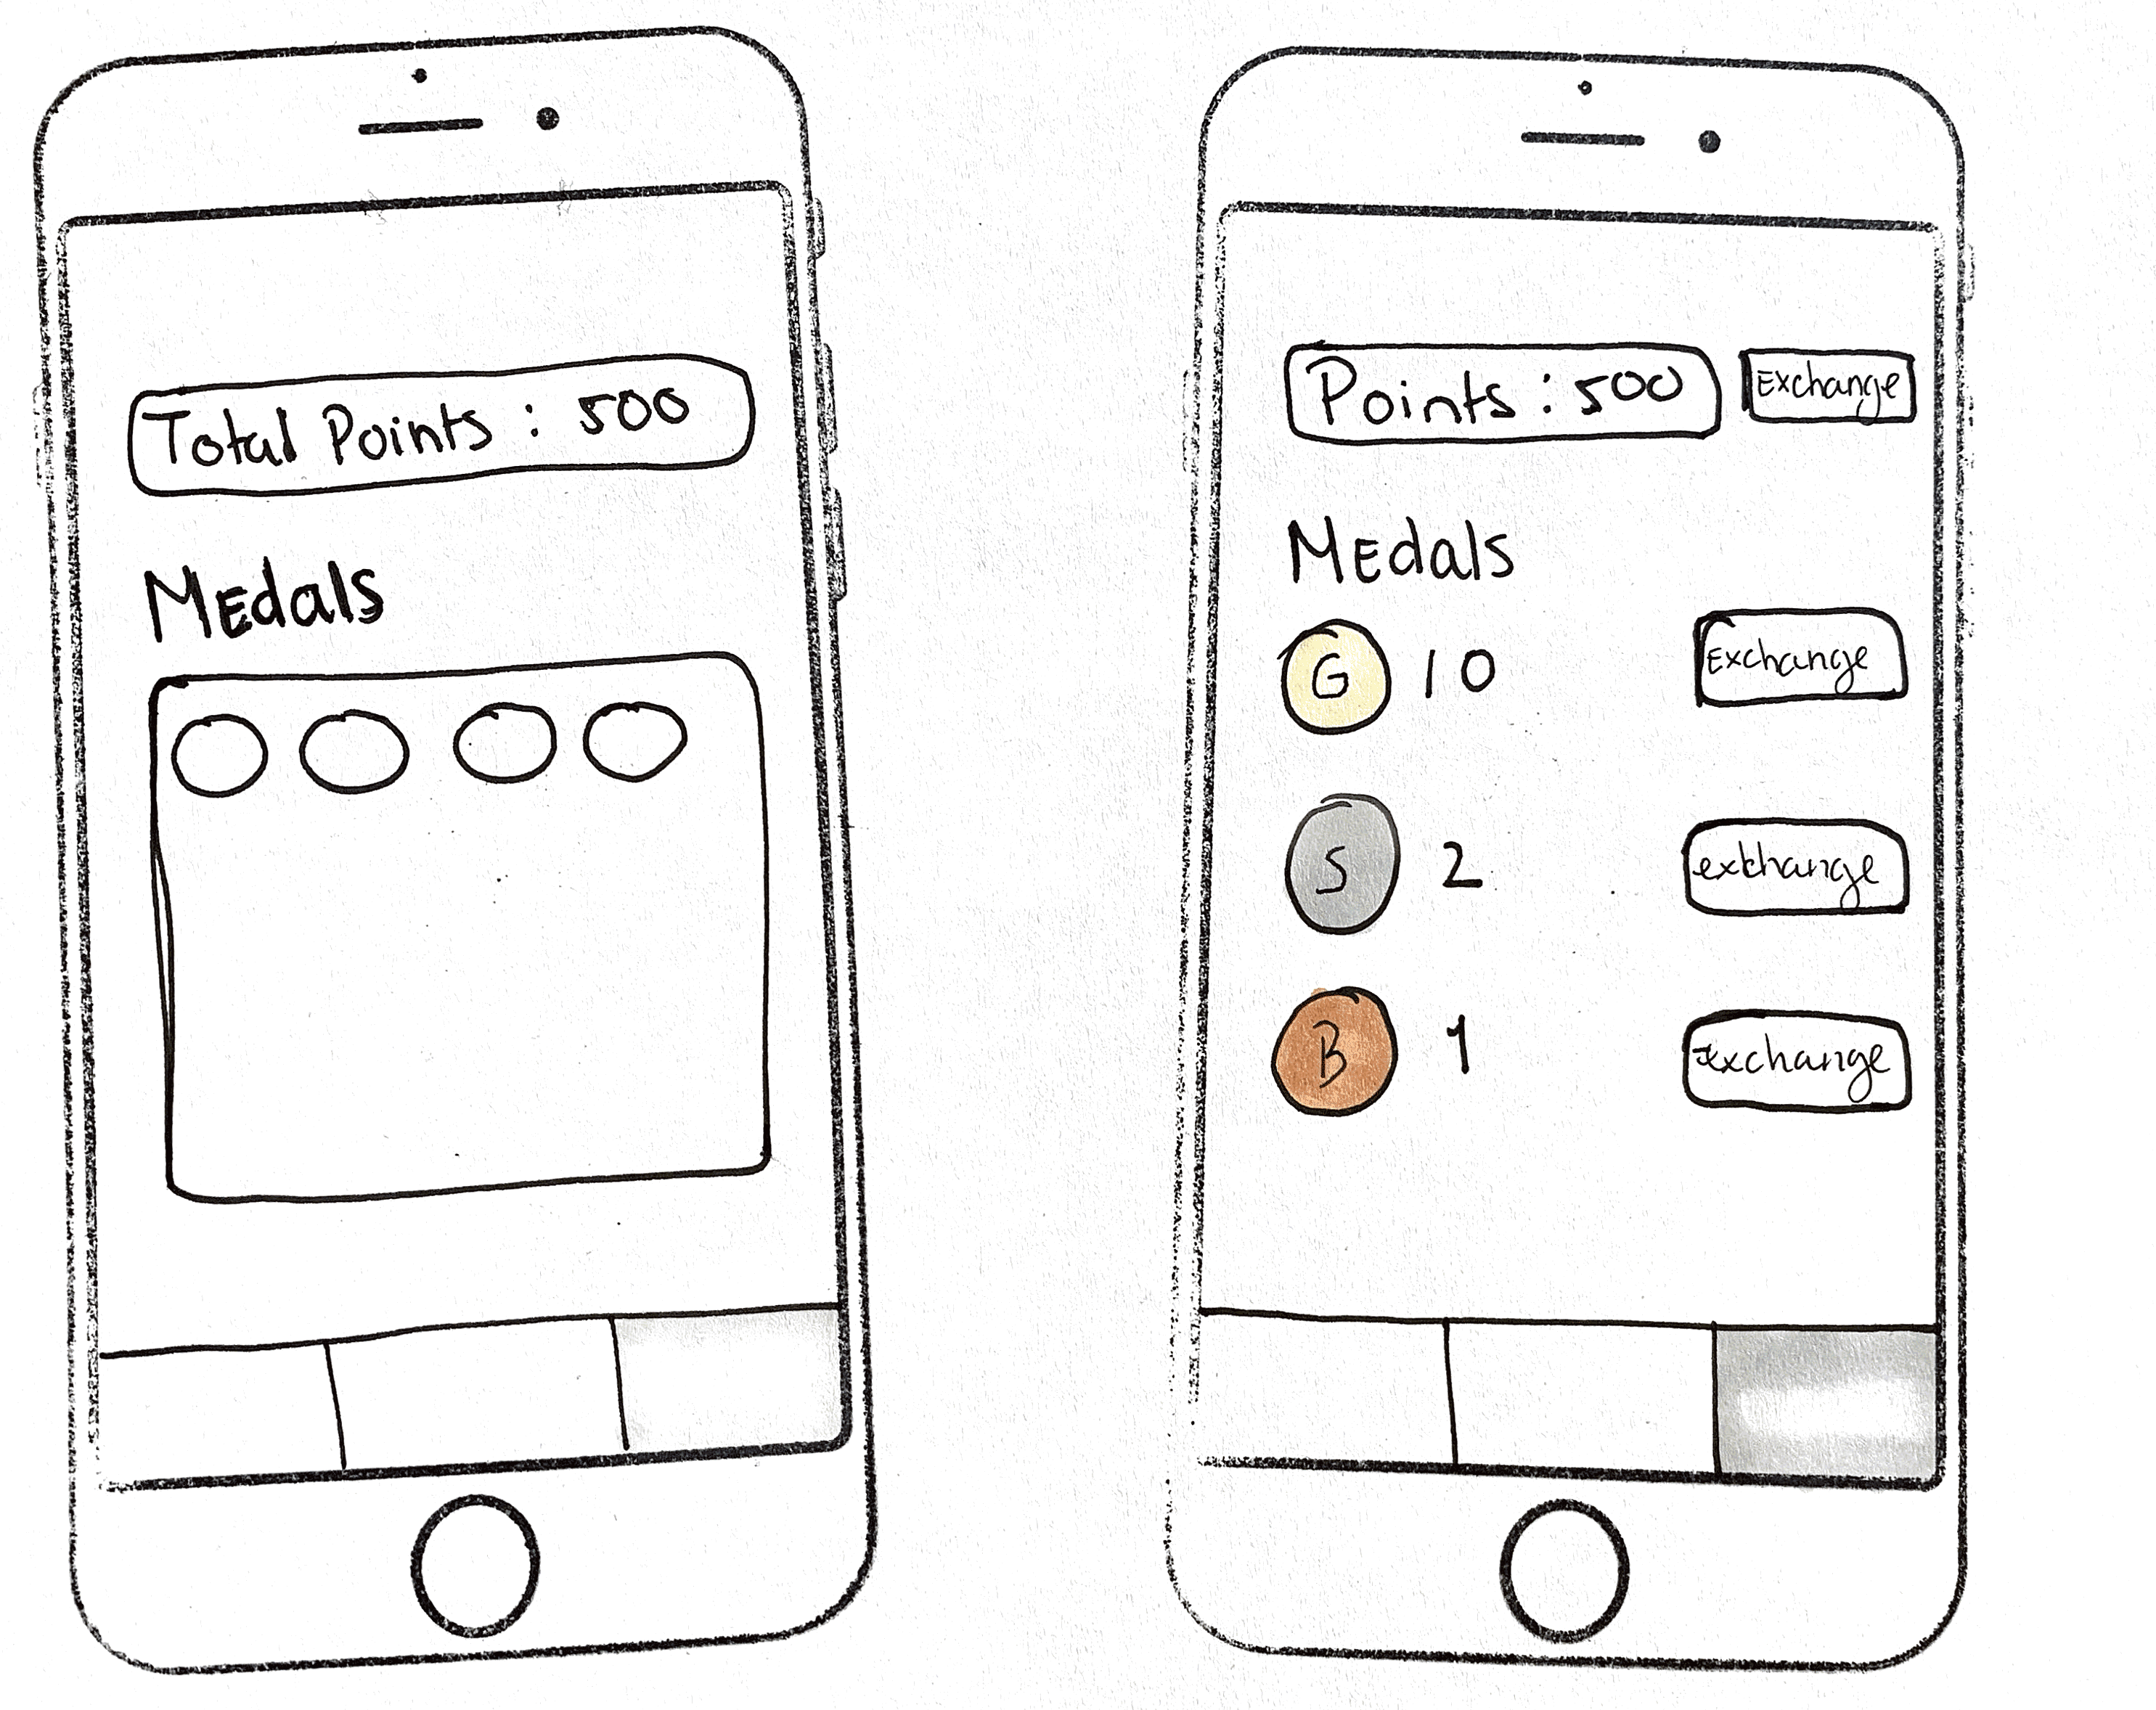 Total Points : 500
Medals
Points : 500
Exchange
Medals
G 10
Exchange
S 2
exchange
B 1
exchange